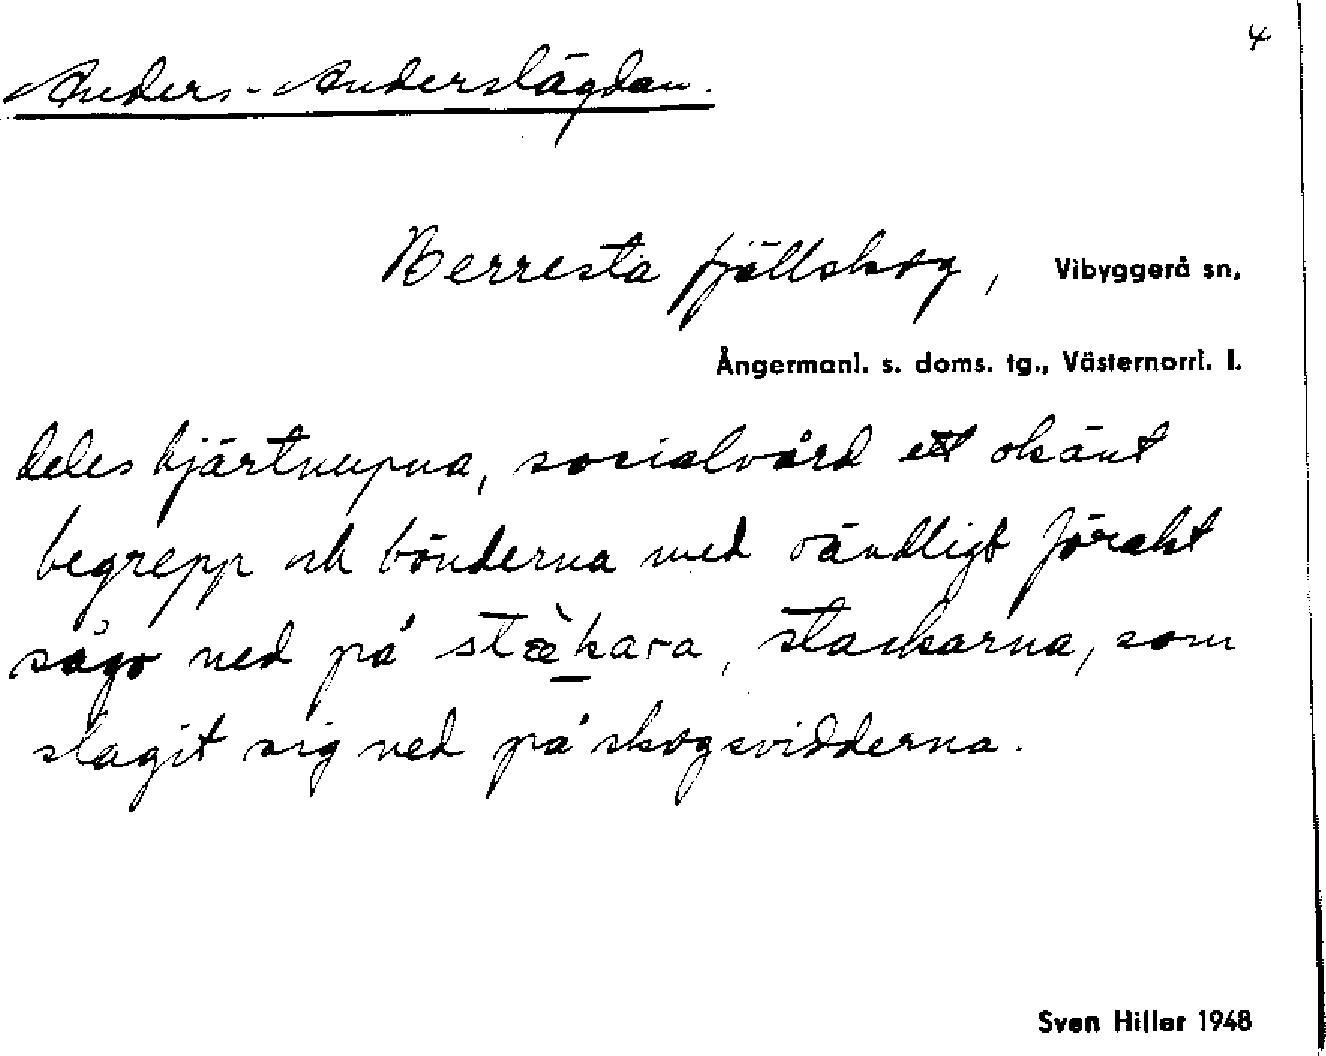 4
Anders-Anderslägdan.
Berresta fjällskog, Vibyggerå sn,
Ångermanl. s. doms. tg., Västernorrl. l.
deles hjärtnupna, socialvård ett okänt
begrepp och bönderna med oändligt förakt
sågo ned på stæ̀kara, stackarna, som
slagit sig ned på skogsvidderna.
Sven Hiller 1948